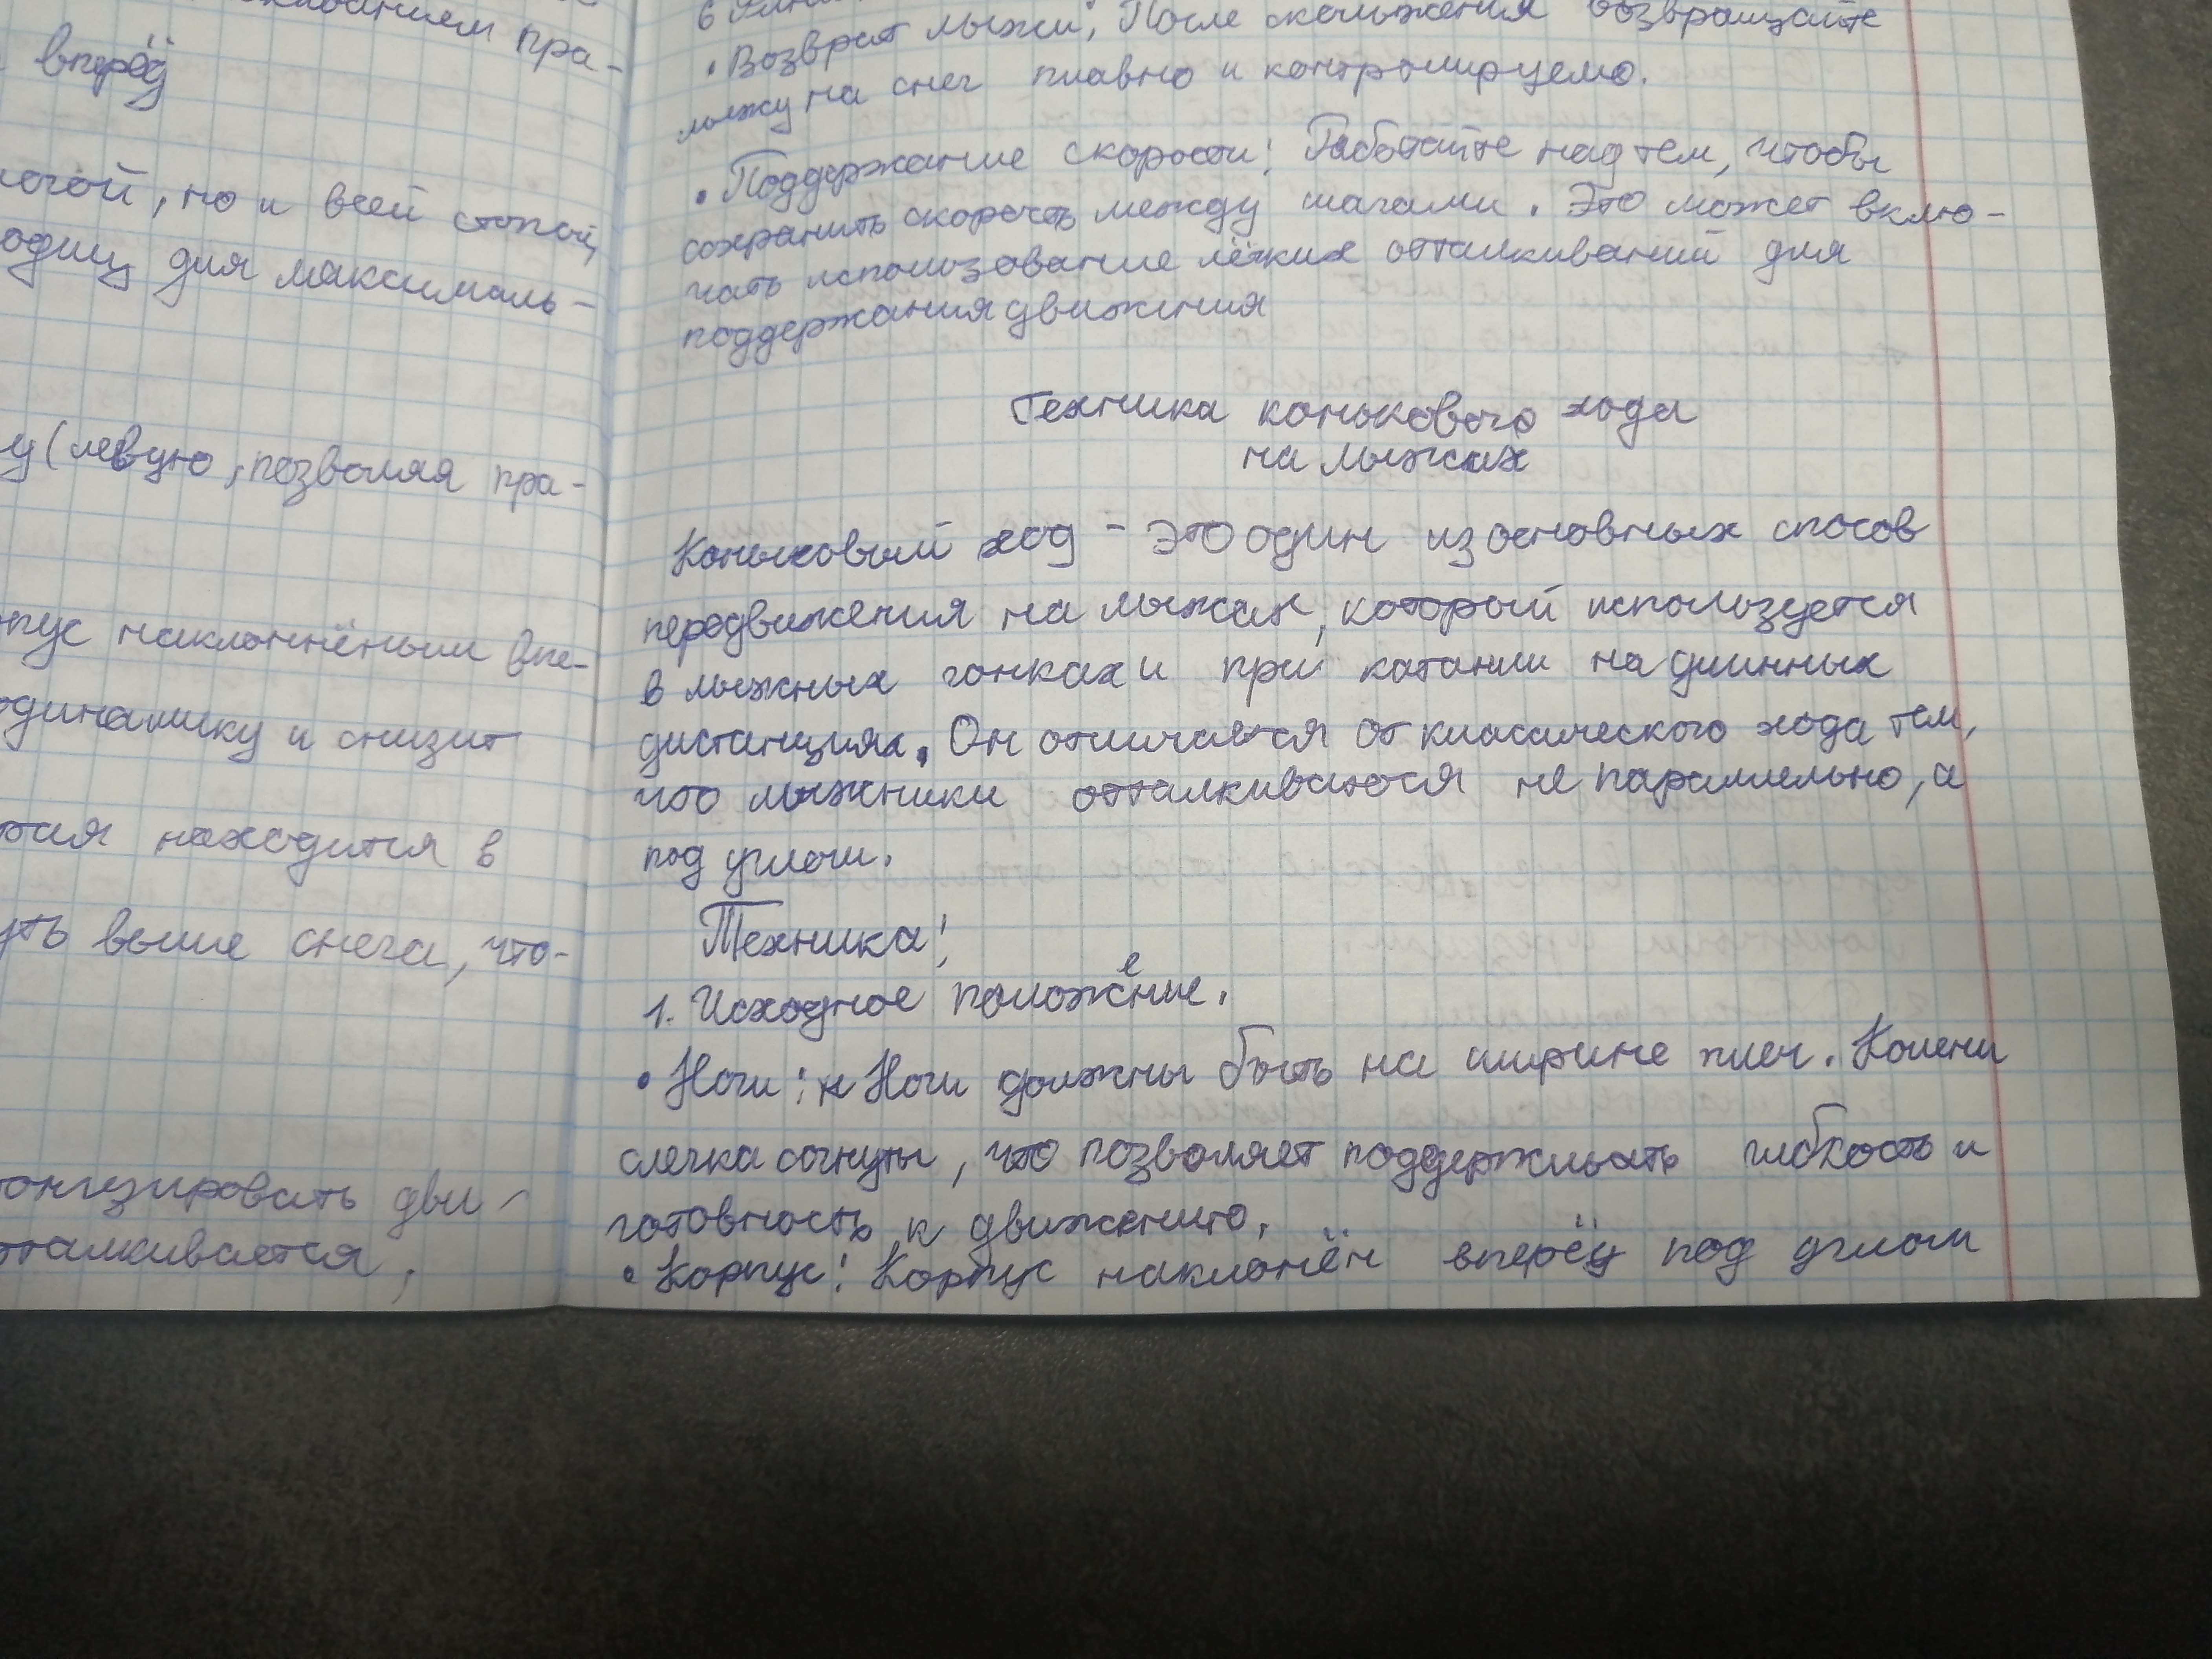 пра-
вперёд
ногой, но и всей стопой,
для максималь-
у (левую, позволяя пра-
пус наклоннёными впе-
одинамику и снизит
находится в
выше снега, что-
дви-
отталкивается,
• Возврат лыжи; После скольжения возвращайте
лыжу на снег плавно и контролируемо.
• Поддержание скорости: Работайте над тем, чтобы
сохранить скорость между шагами. Это может вклю-
чать использование лёгких отталкиваний для
поддержания движения
Техника конькового хода
на лыжах
Коньковый ход - это один из основных спосов
передвижения на лыжах, который используется
в лыжных гонках и при катании на длинных
дистанциях. Он отличается от классического хода тем,
что лыжники отталкиваются не паралельно, а
под углом.
Техника:
1. Исходное положение.
• Ноги: Ноги должны быть на ширине плеч. Колени
слегка согнуты, что позволяет поддерживать гибкость и
готовность к движению.
• Корпус: Корпус наклонён вперёд под углом